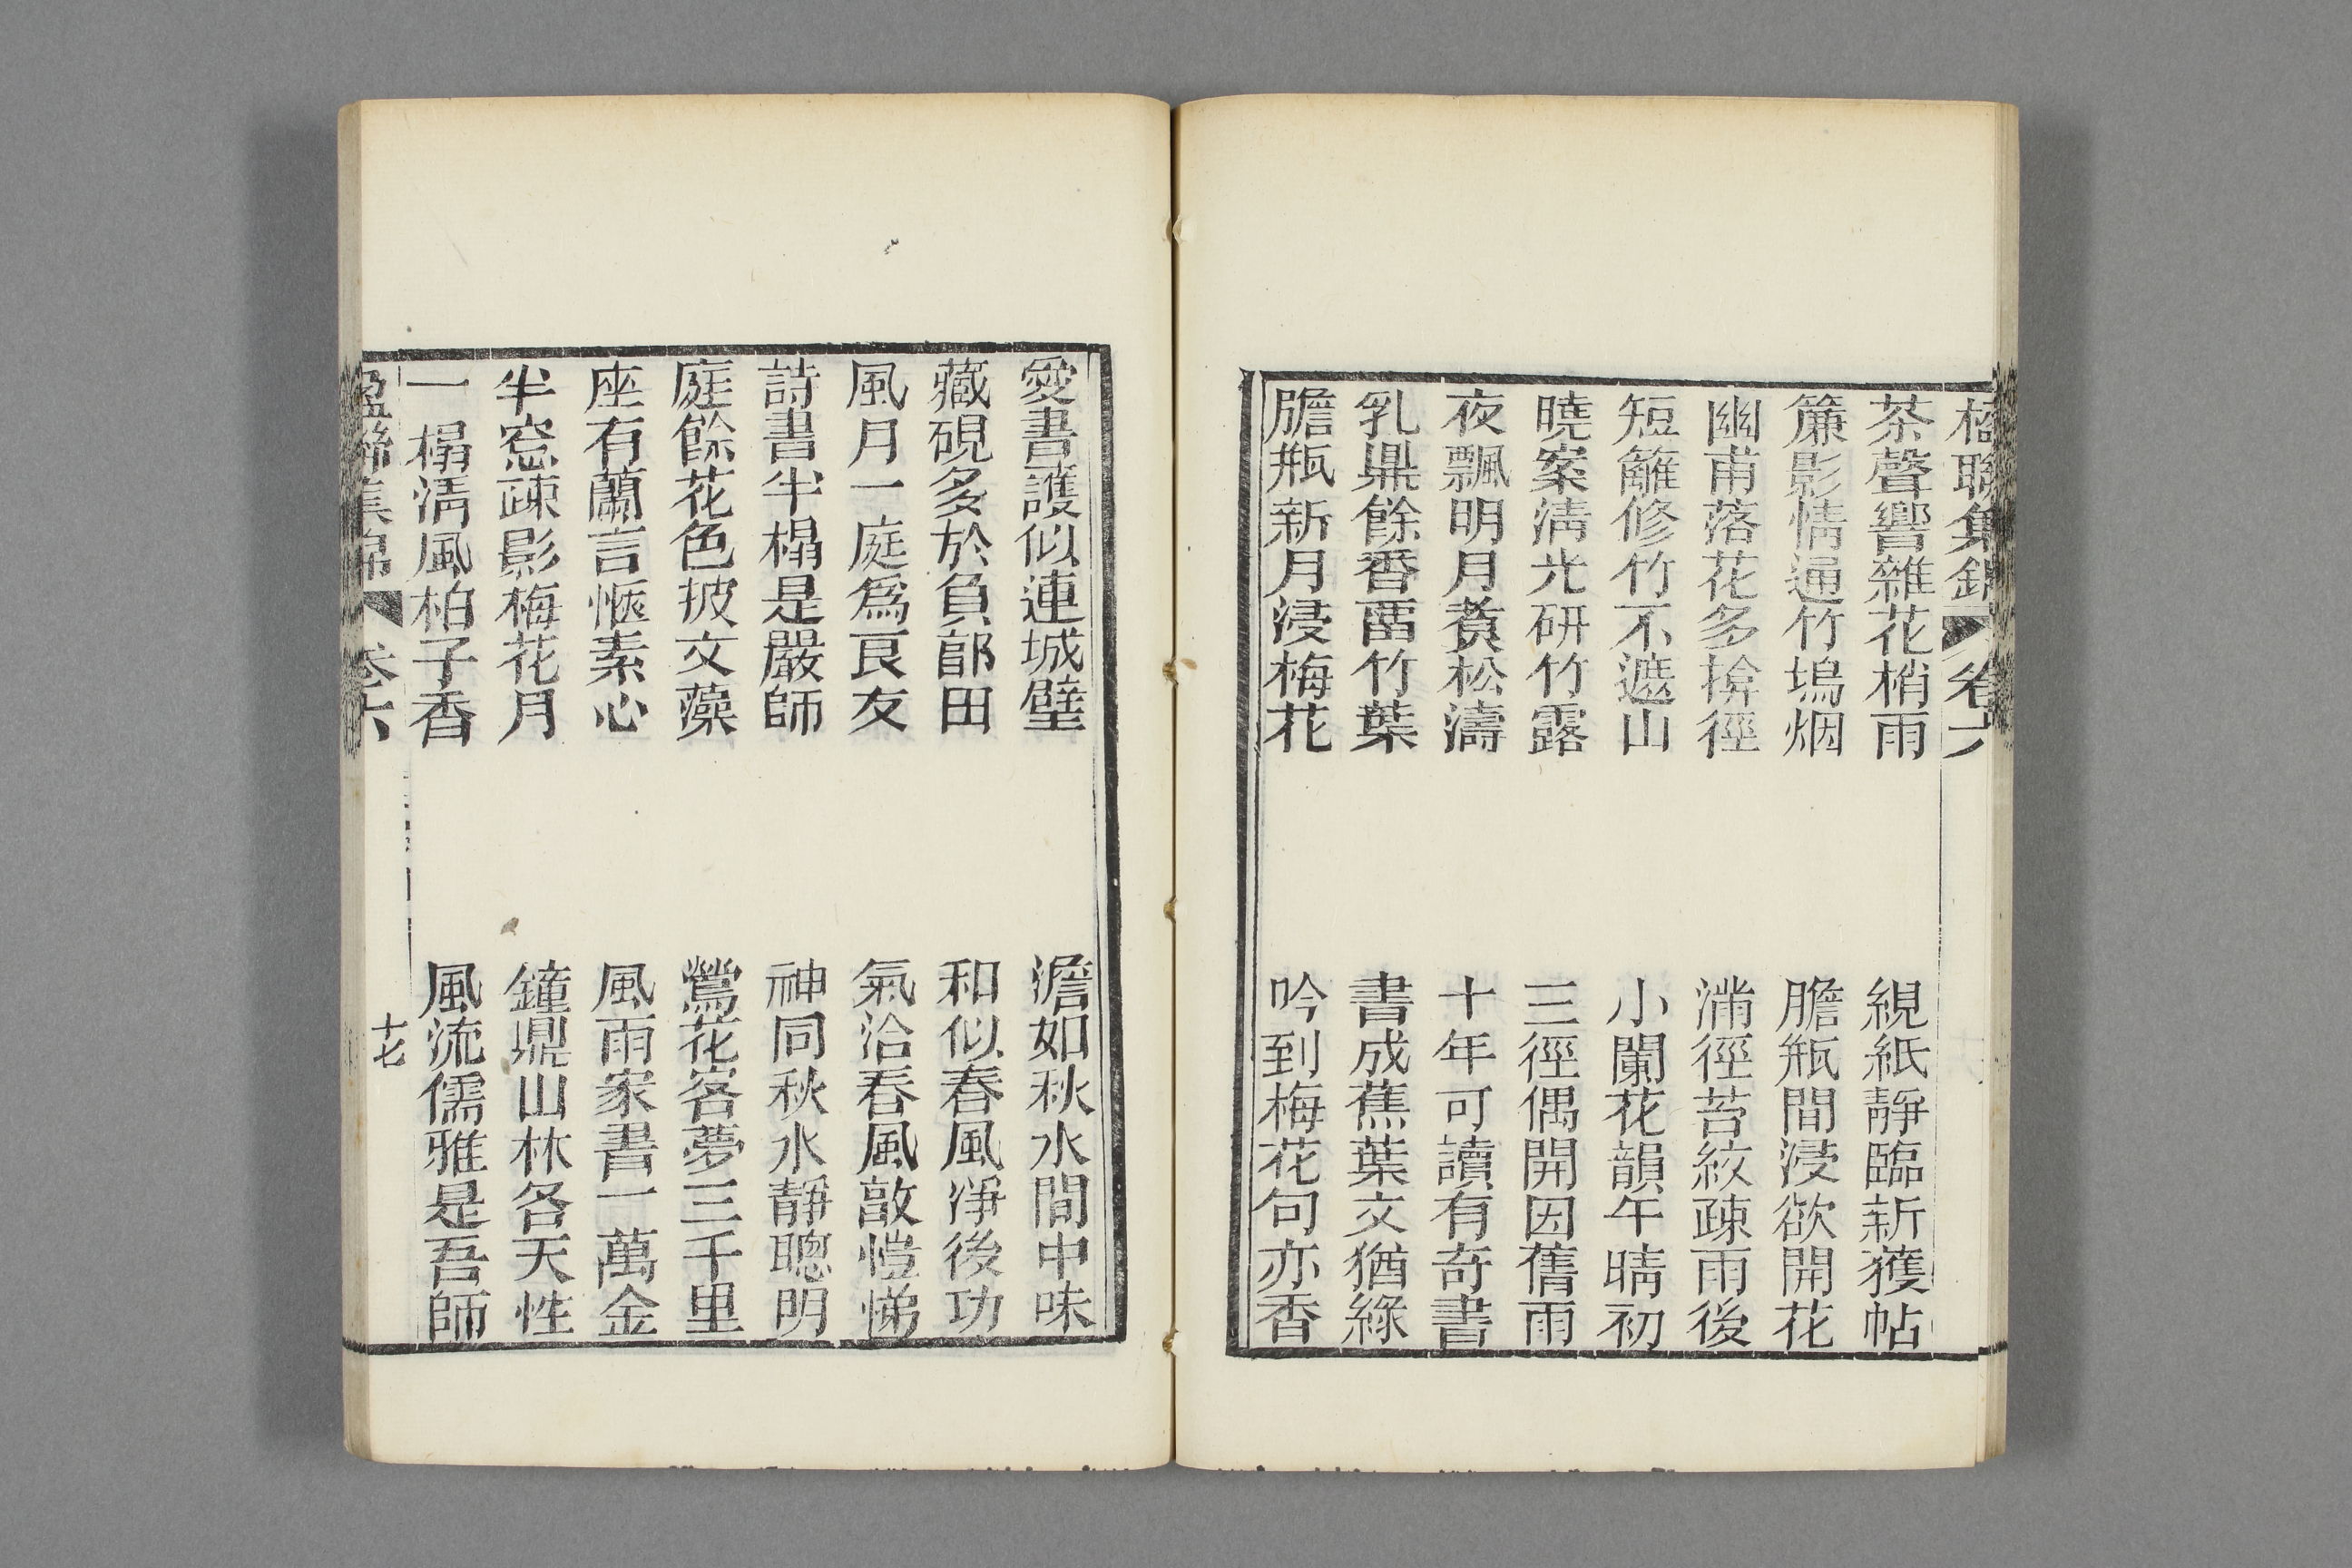 楹聯集錦 卷六
茶聲響雜花梢雨
絸紙靜臨新獲帖
簾影情通竹塢烟
膽瓶間浸欲開花
幽甫落花多揜徑
滿徑苔紋疎雨後
短籬修竹不遮山
小闌花韻午晴初
曉案清光研竹露
三徑偶開因舊雨
夜飄明月煑松濤
十年可讀有奇書
乳鼎餘香畱竹葉
書成蕉葉文猶綠
膽瓶新月浸梅花
吟到梅花句亦香
愛書護似連城璧
澹如秋水間中味
藏硯多於負郭田
和似春風淨後功
風月一庭爲良友
氣洽春風敦愷悌
詩書半榻是嚴師
神同秋水靜聰明
庭餘花色披文藻
鶯花客夢三千里
座有蘭言愜素心
風雨家書一萬金
半窓疎影梅花月
鐘鼎山林各天性
一榻清風柏子香
風流儒雅是吾師
楹聯集錦 卷六 十七